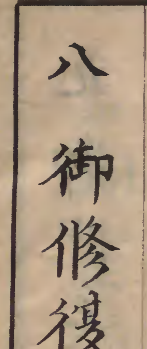 八御修復